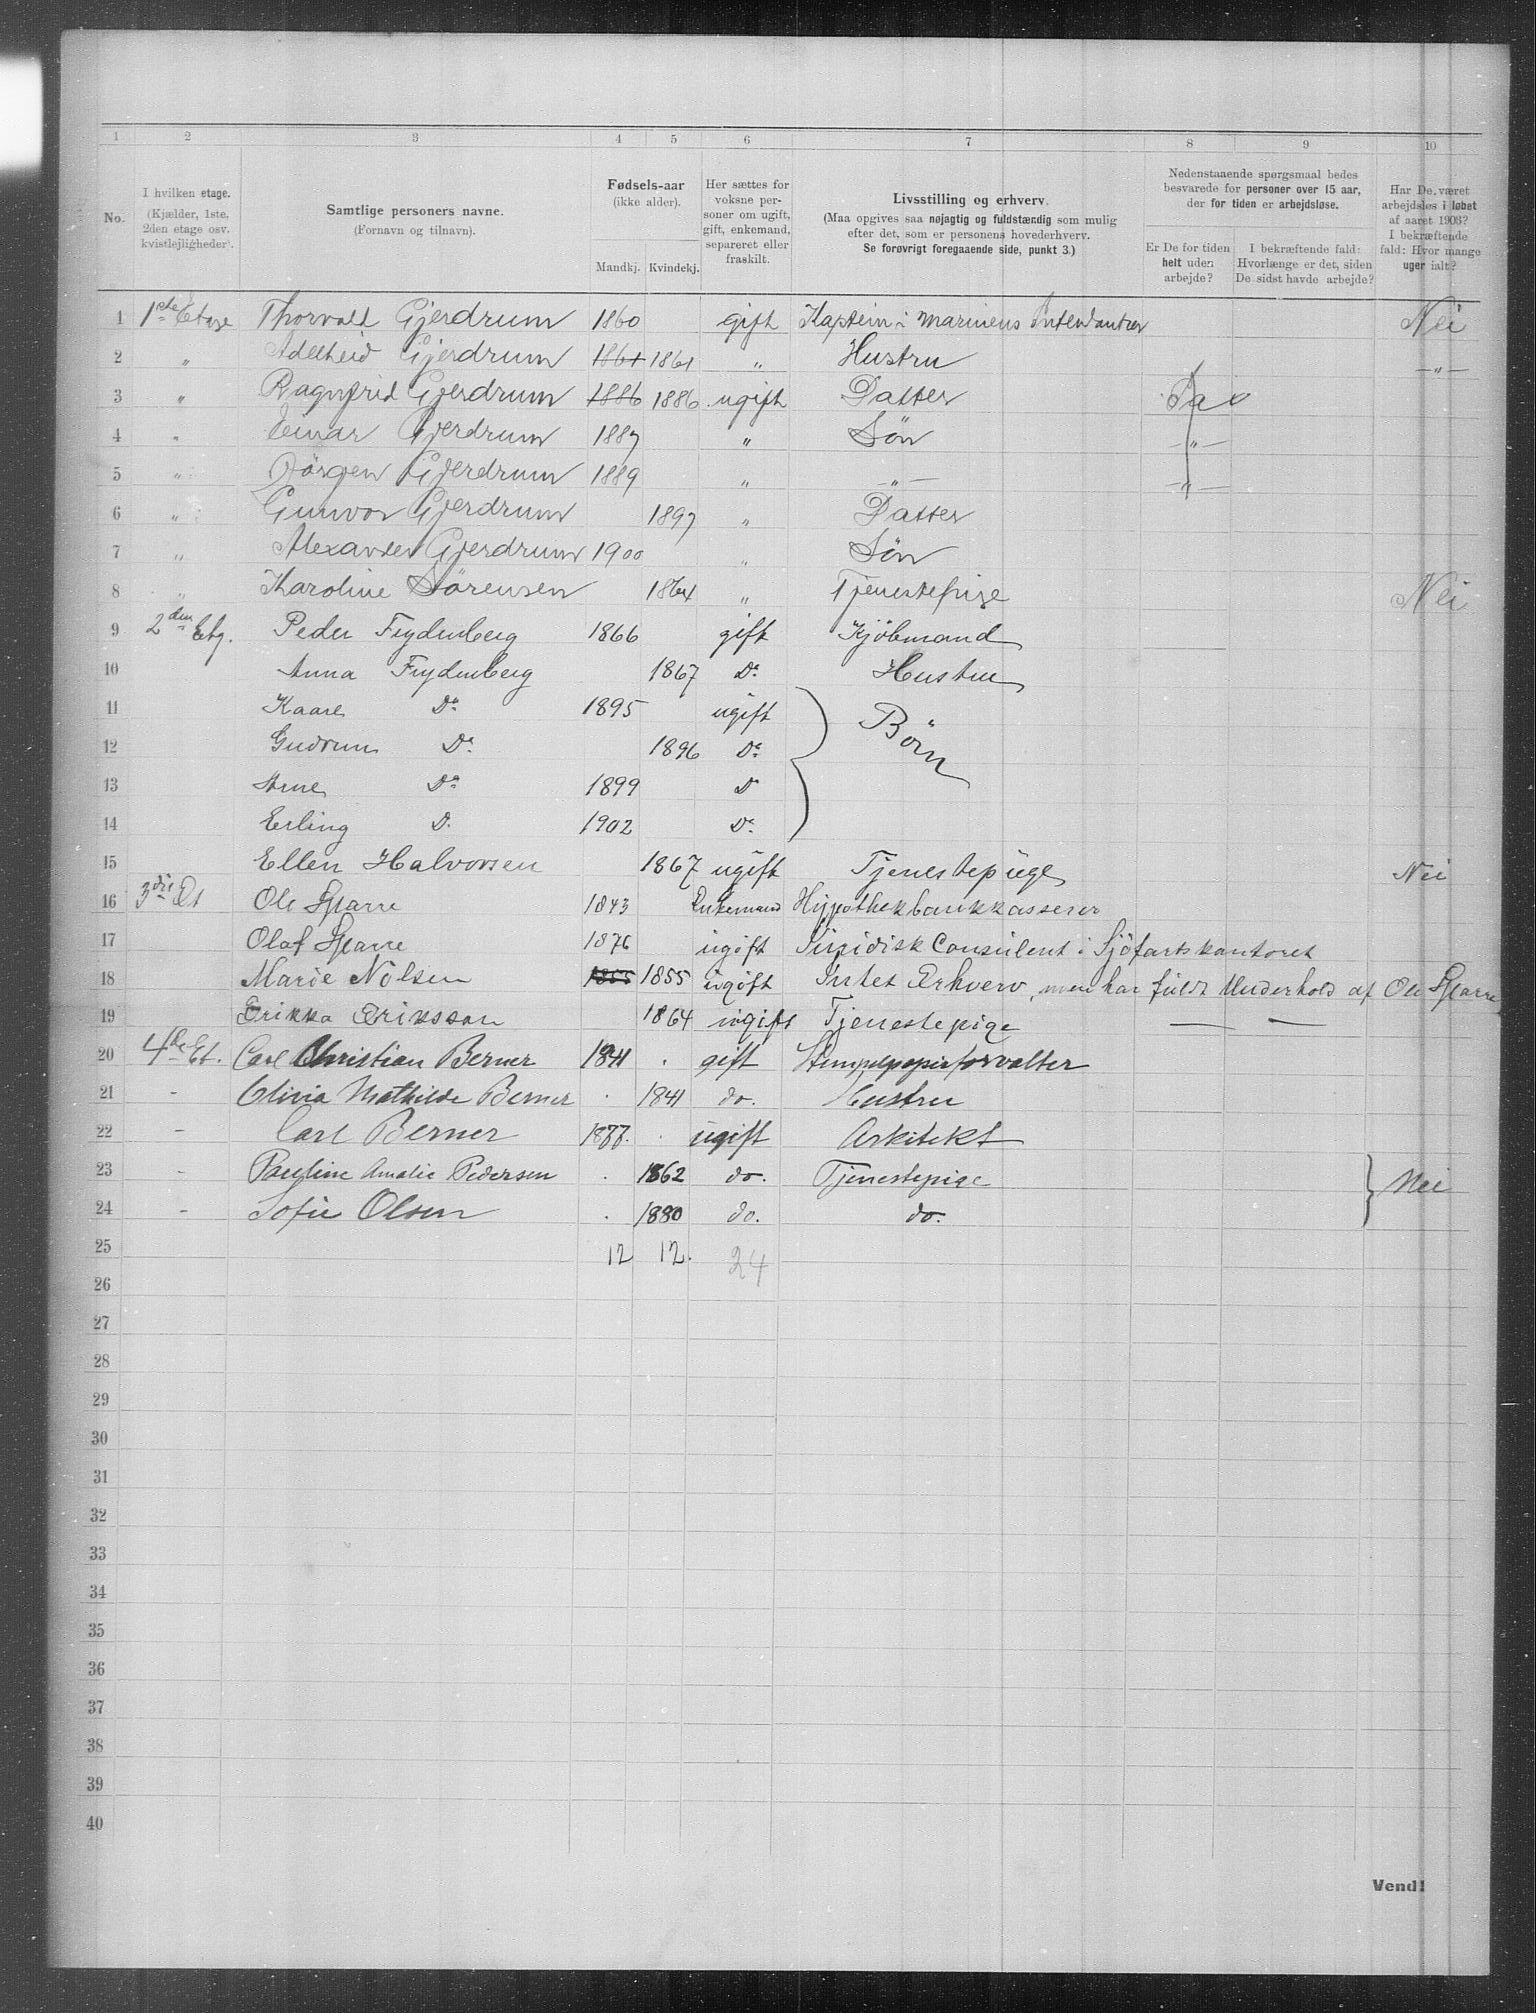 1 2 3 4 5 6 7 8 9 10
No.
I hvilken etage.
(Kjælder, 1ste,
2den etage osv.
kvistlejligheder).
Samtlige personers navne.
(Fornavn og tilnavn).
Fødsels-aar
(ikke alder).
Mandkj. Kvindekj.
Her sættes for
voksne per-
soner om ugift,
gift, enkemand,
separeret eller
fraskilt.
Livsstilling og erhverv.
(Maa opgives saa nøjagtig og fuldstændig som mulig
efter det, som er personens hovederhverv.
Se forøvrigt foregaaende side, punkt 3.)
Nedenstaaende spørgsmaal bedes
besvarede for personer over 15 aar,
der for tiden er arbejdsløse.
Er De for tiden
helt uden
arbejde?
I bekræftende fald:
Hvorlænge er det, siden
De sidst havde arbejde?
Har De været
arbejdsløs i løbet
af aaret 1903?
I bekræftende
fald: Hvor mange
uger ialt?
1 1ste Etage Thorvald Gjerdrum 1860 gift Kaptein i Marinens Intendantur Nei
2 " Adelheid Gjerdrum 1861 1861 " Hustru -"-
3 " Ragnfrid Gjerdrum 1886 1886 ugift Datter Ja
4 " Einar Gjerdrum 1887 " Søn -"-
5 " Jörgen Gjerdrum 1889 " -"- -"-
6 " Gunvor Gjerdrum 1897 " Datter
7 " Alexander Gjerdrum 1900 " Søn
8 " Karoline Sörensen 1864 " Tjenestepige Nei
9 2den Etg. Peder Frydenberg 1866 gift Kjöbmand
10 Anna Frydenberg 1867 Do Hustru
11 Kaare Do 1895 ugift Börn
12 Gudrun Do 1896 Do
13 Arne Do 1899 Do
14 Erling D. 1902 Do
15 Ellen Halvorsen 1867 ugift Tjenestepige Nei
16 3die Et Ole Sparre 1843 Enkemand Hypothekbankkasserer
17 Olaf Sparre 1876 ugift Juridisk Consulent i Sjöfartskontoret
18 Marie Nilsen 1855 1855 ugift Intet Erhverv, men har fuldt Underhold af Ole Sparre
19 Erikka Eriksson 1864 ugift Tjenestepige — —
20 4de Et. Carl Christian Berner 1841 . gift Stempelpapirforvalter
21 - Olivia Mathilde Berner . 1841 do. Hustru
22 - Carl Berner 1877. . ugift Arkitekt
23 - Pauline Amalie Pedersen . 1862 do. Tjenestepige Nei
24 - Sofie Olsen . 1880 do. do.
25 12 12. 24
26
27
28
29
30
31
32
33
34
35
36
37
38
39
40
Vend!